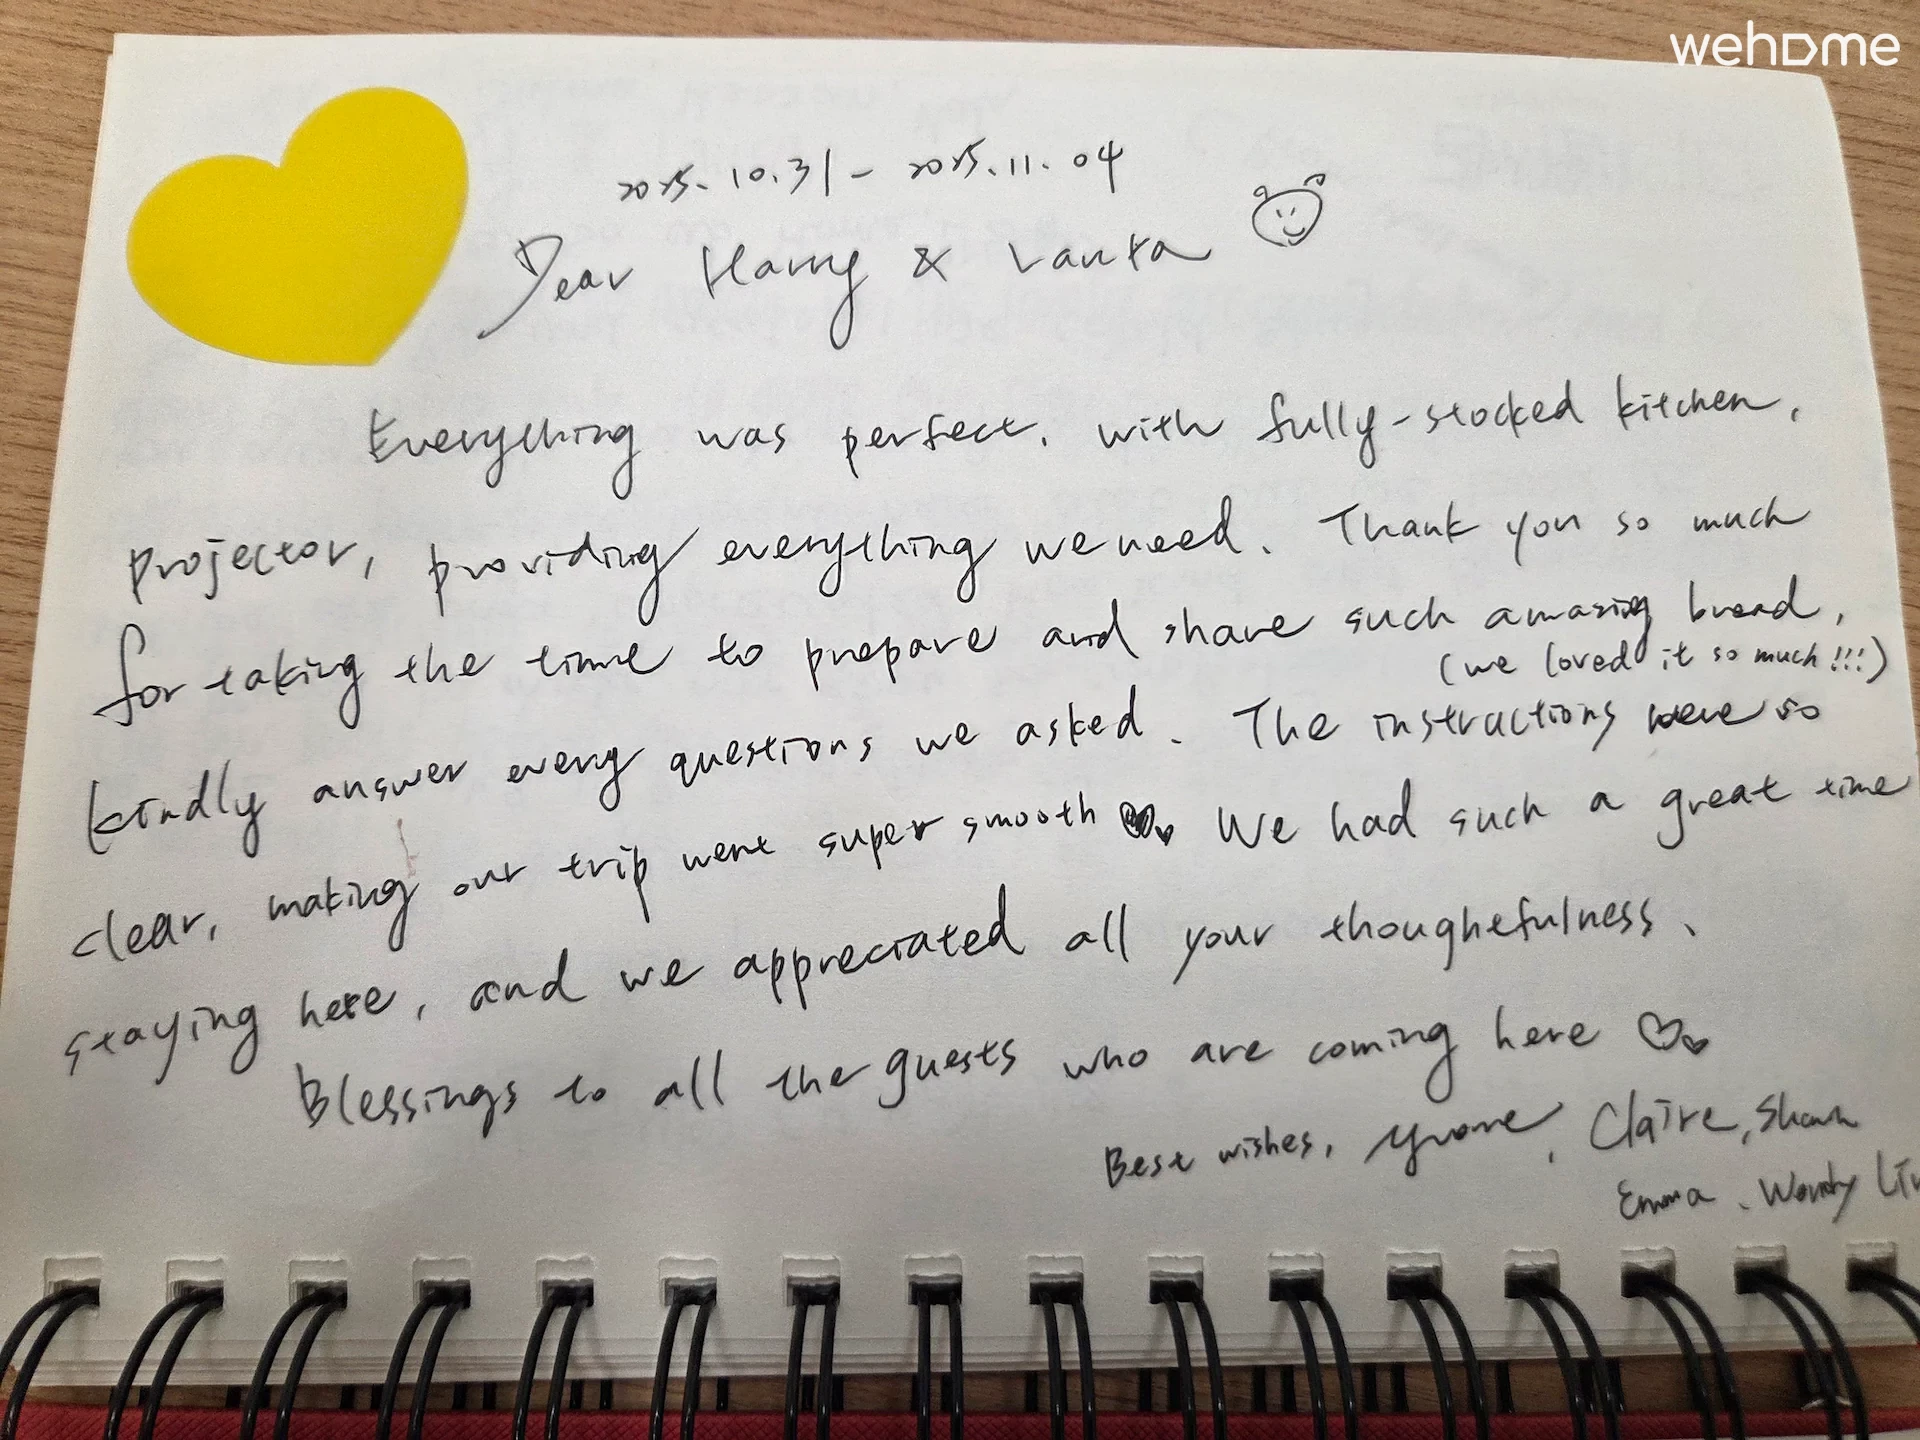 wehome
2025.10.31 - 2025.11.04
Dear Harry &
Everything was perfect, with fully-stocked kitchen,
projector, providing everything we need. Thank you so much
for taking the time to prepare and share such amazing bread,
(we loved it so much!!!)
kindly answer every questions we asked. The instructions were so
clear, making our trip went super smooth We had such a great time
staying here, and we appreciated all your thoughtfulness.
Blessings to all the guests who are coming here ♡♡
Best wishes, Yvonne, Claire,
Emma,